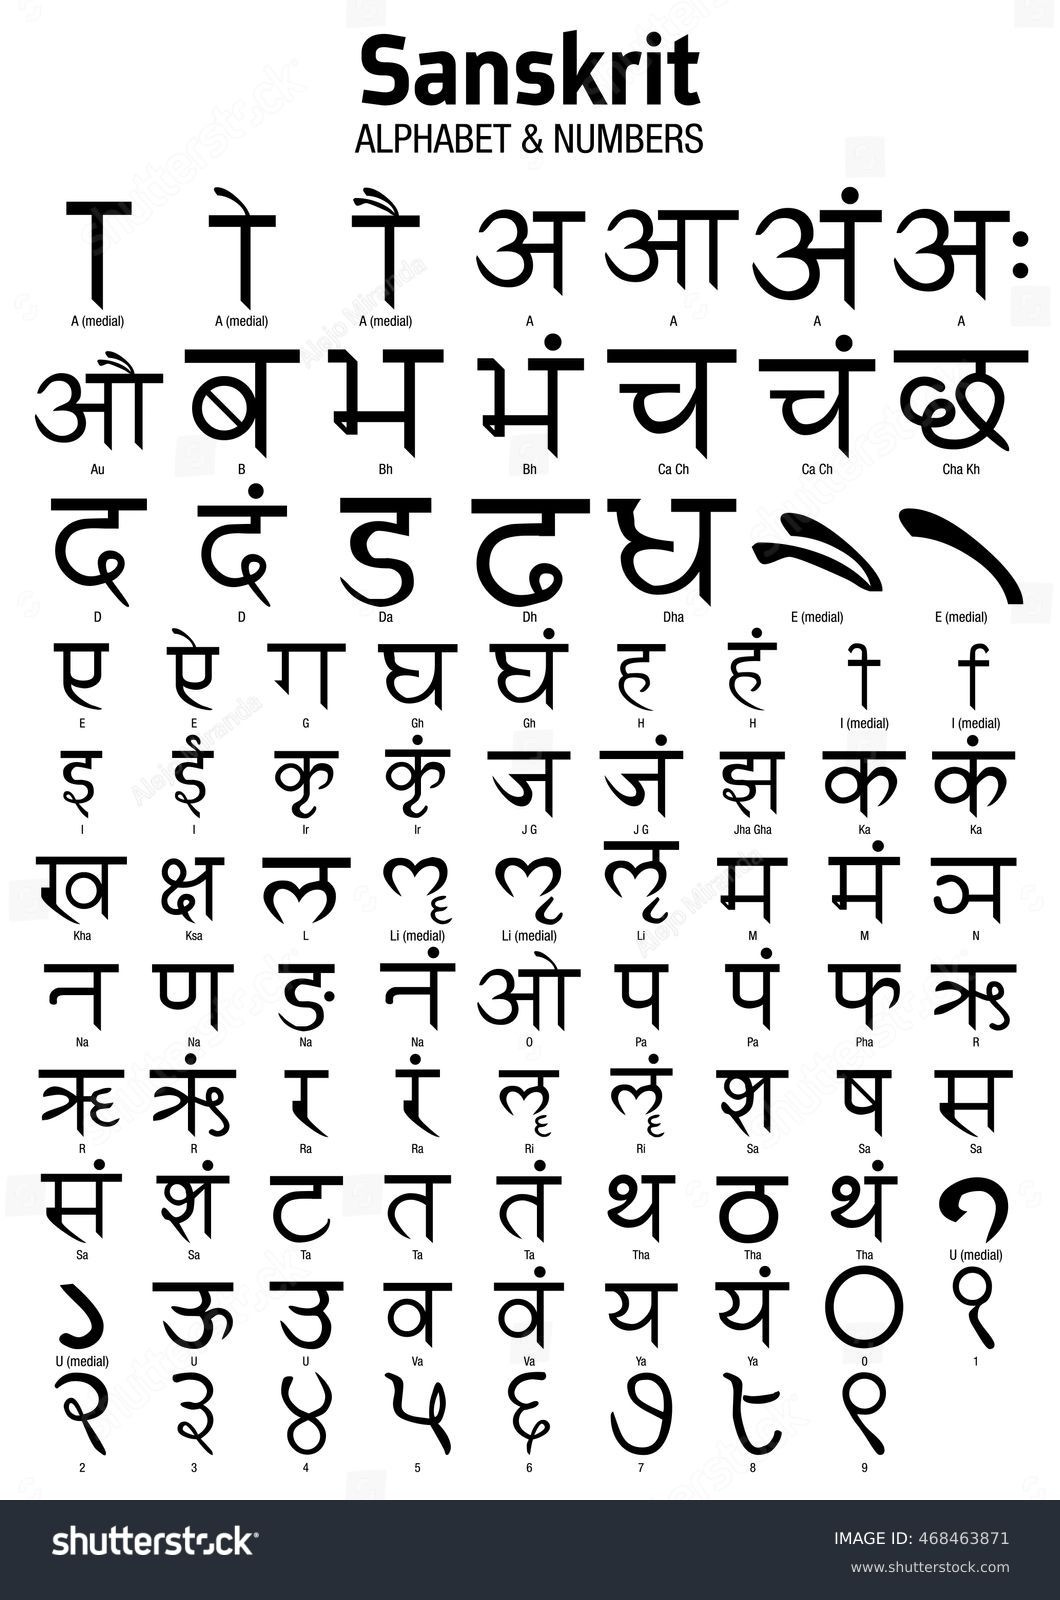 Sanskrit
ALPHABET & NUMBERS
ा ो ौ अ आ अं अः
A (medial) A (medial) A (medial) A A A A
औ ब भ भं च चं छ
Au B Bh Bh Ca Ch Ca Ch Cha Kh
द दं ड ढ ध ै े
D D Da Dh Dha E (medial) E (medial)
ए ऐ ग घ घं ह हं ि ी
E E G Gh Gh H H I (medial) I (medial)
इ ई कृ कृं ज जं झ क कं
I I Ir Ir J G J G Jha Gha Ka Ka
ख क्ष ल ॡ ऌ ऌ म मं ञ
Kha Ksa L Li (medial) Li (medial) Li M M N
न ण ङ नं ओ प पं फ ऋ
Na Na Na Na O Pa Pa Pha R
ॠ ऋं र रं ॡ ॡं श ष स
R R Ra Ra Ri Ri Sa Sa Sa
सं शं ट त तं थ ठ थं ु
Sa Sa Ta Ta Ta Tha Tha Tha U (medial)
ू ऊ उ व वं य यं ० १
U (medial) U U Va Va Ya Ya 0 1
२ ३ ४ ५ ६ ७ ८ ९
2 3 4 5 6 7 8 9
shutterstock
IMAGE ID: 468463871
www.shutterstock.com